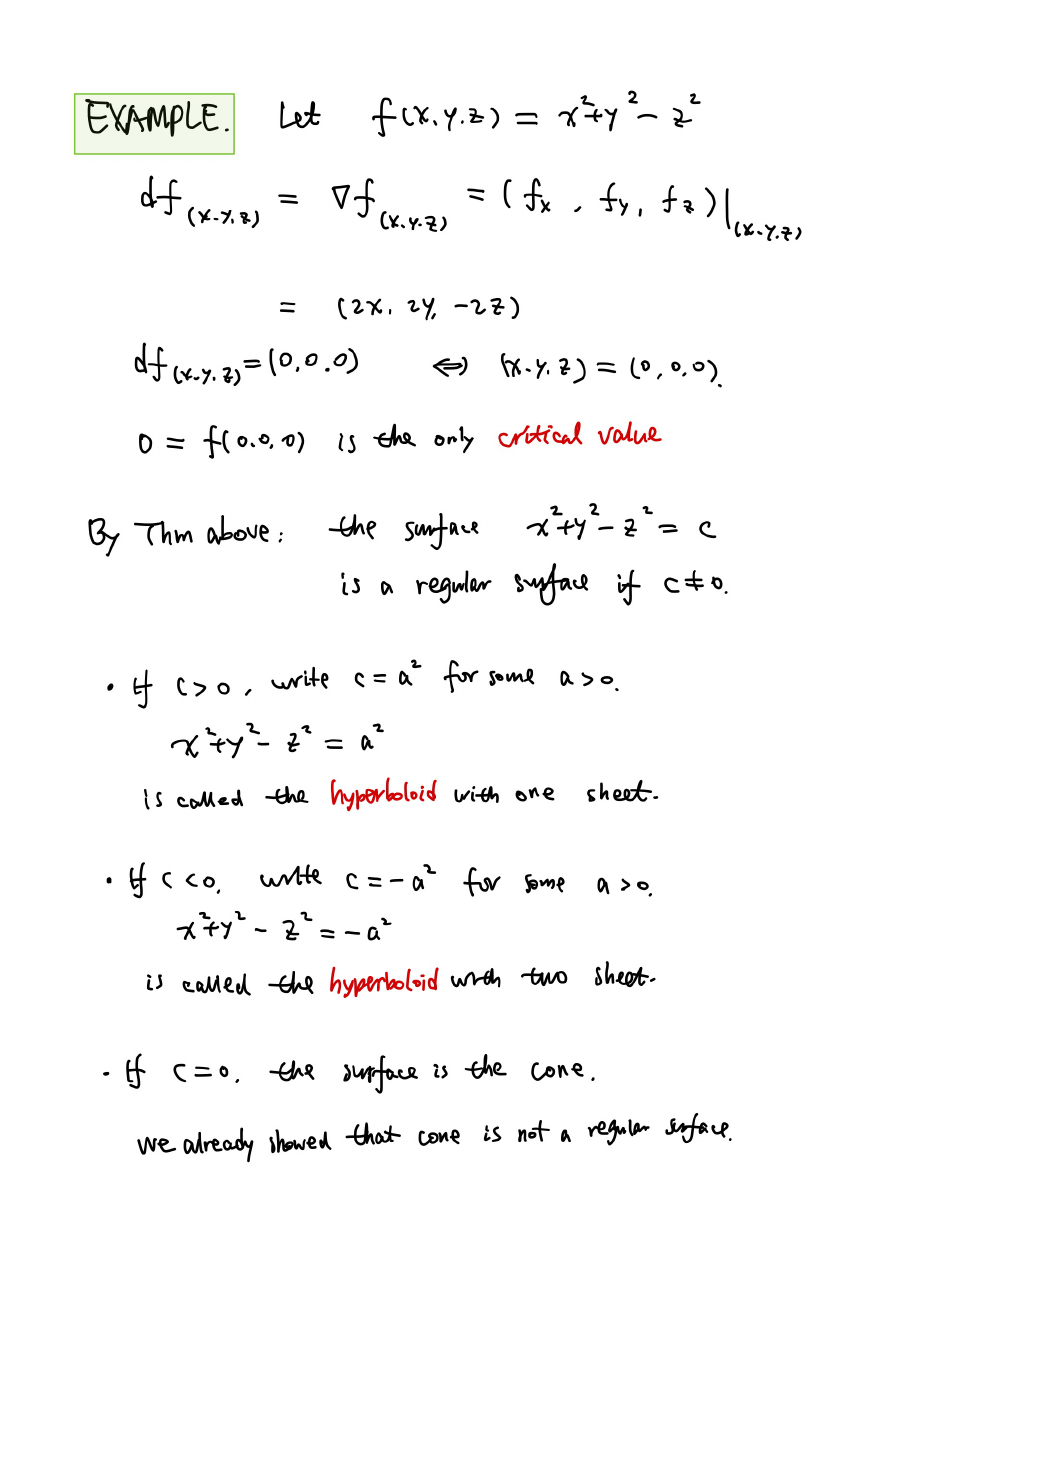 EXAMPLE. Let f(x,y,z) = x²+y²-z²
df(x,y,z) = ∇f(x,y,z) = (fx, fy, fz)|(x,y,z)
= (2x, 2y, -2z)
df(x,y,z) = (0,0,0) ⇔ (x,y,z) = (0,0,0).
0 = f(0,0,0) is the only critical value
By Thm above: the surface x²+y²-z² = c
is a regular surface if c≠0.
• If c>0, write c = a² for some a>0.
x²+y²-z² = a²
is called the hyperboloid with one sheet.
• If c<0, write c = -a² for some a>0.
x²+y²-z² = -a²
is called the hyperboloid with two sheet.
• If c=0, the surface is the cone.
we already showed that cone is not a regular surface.